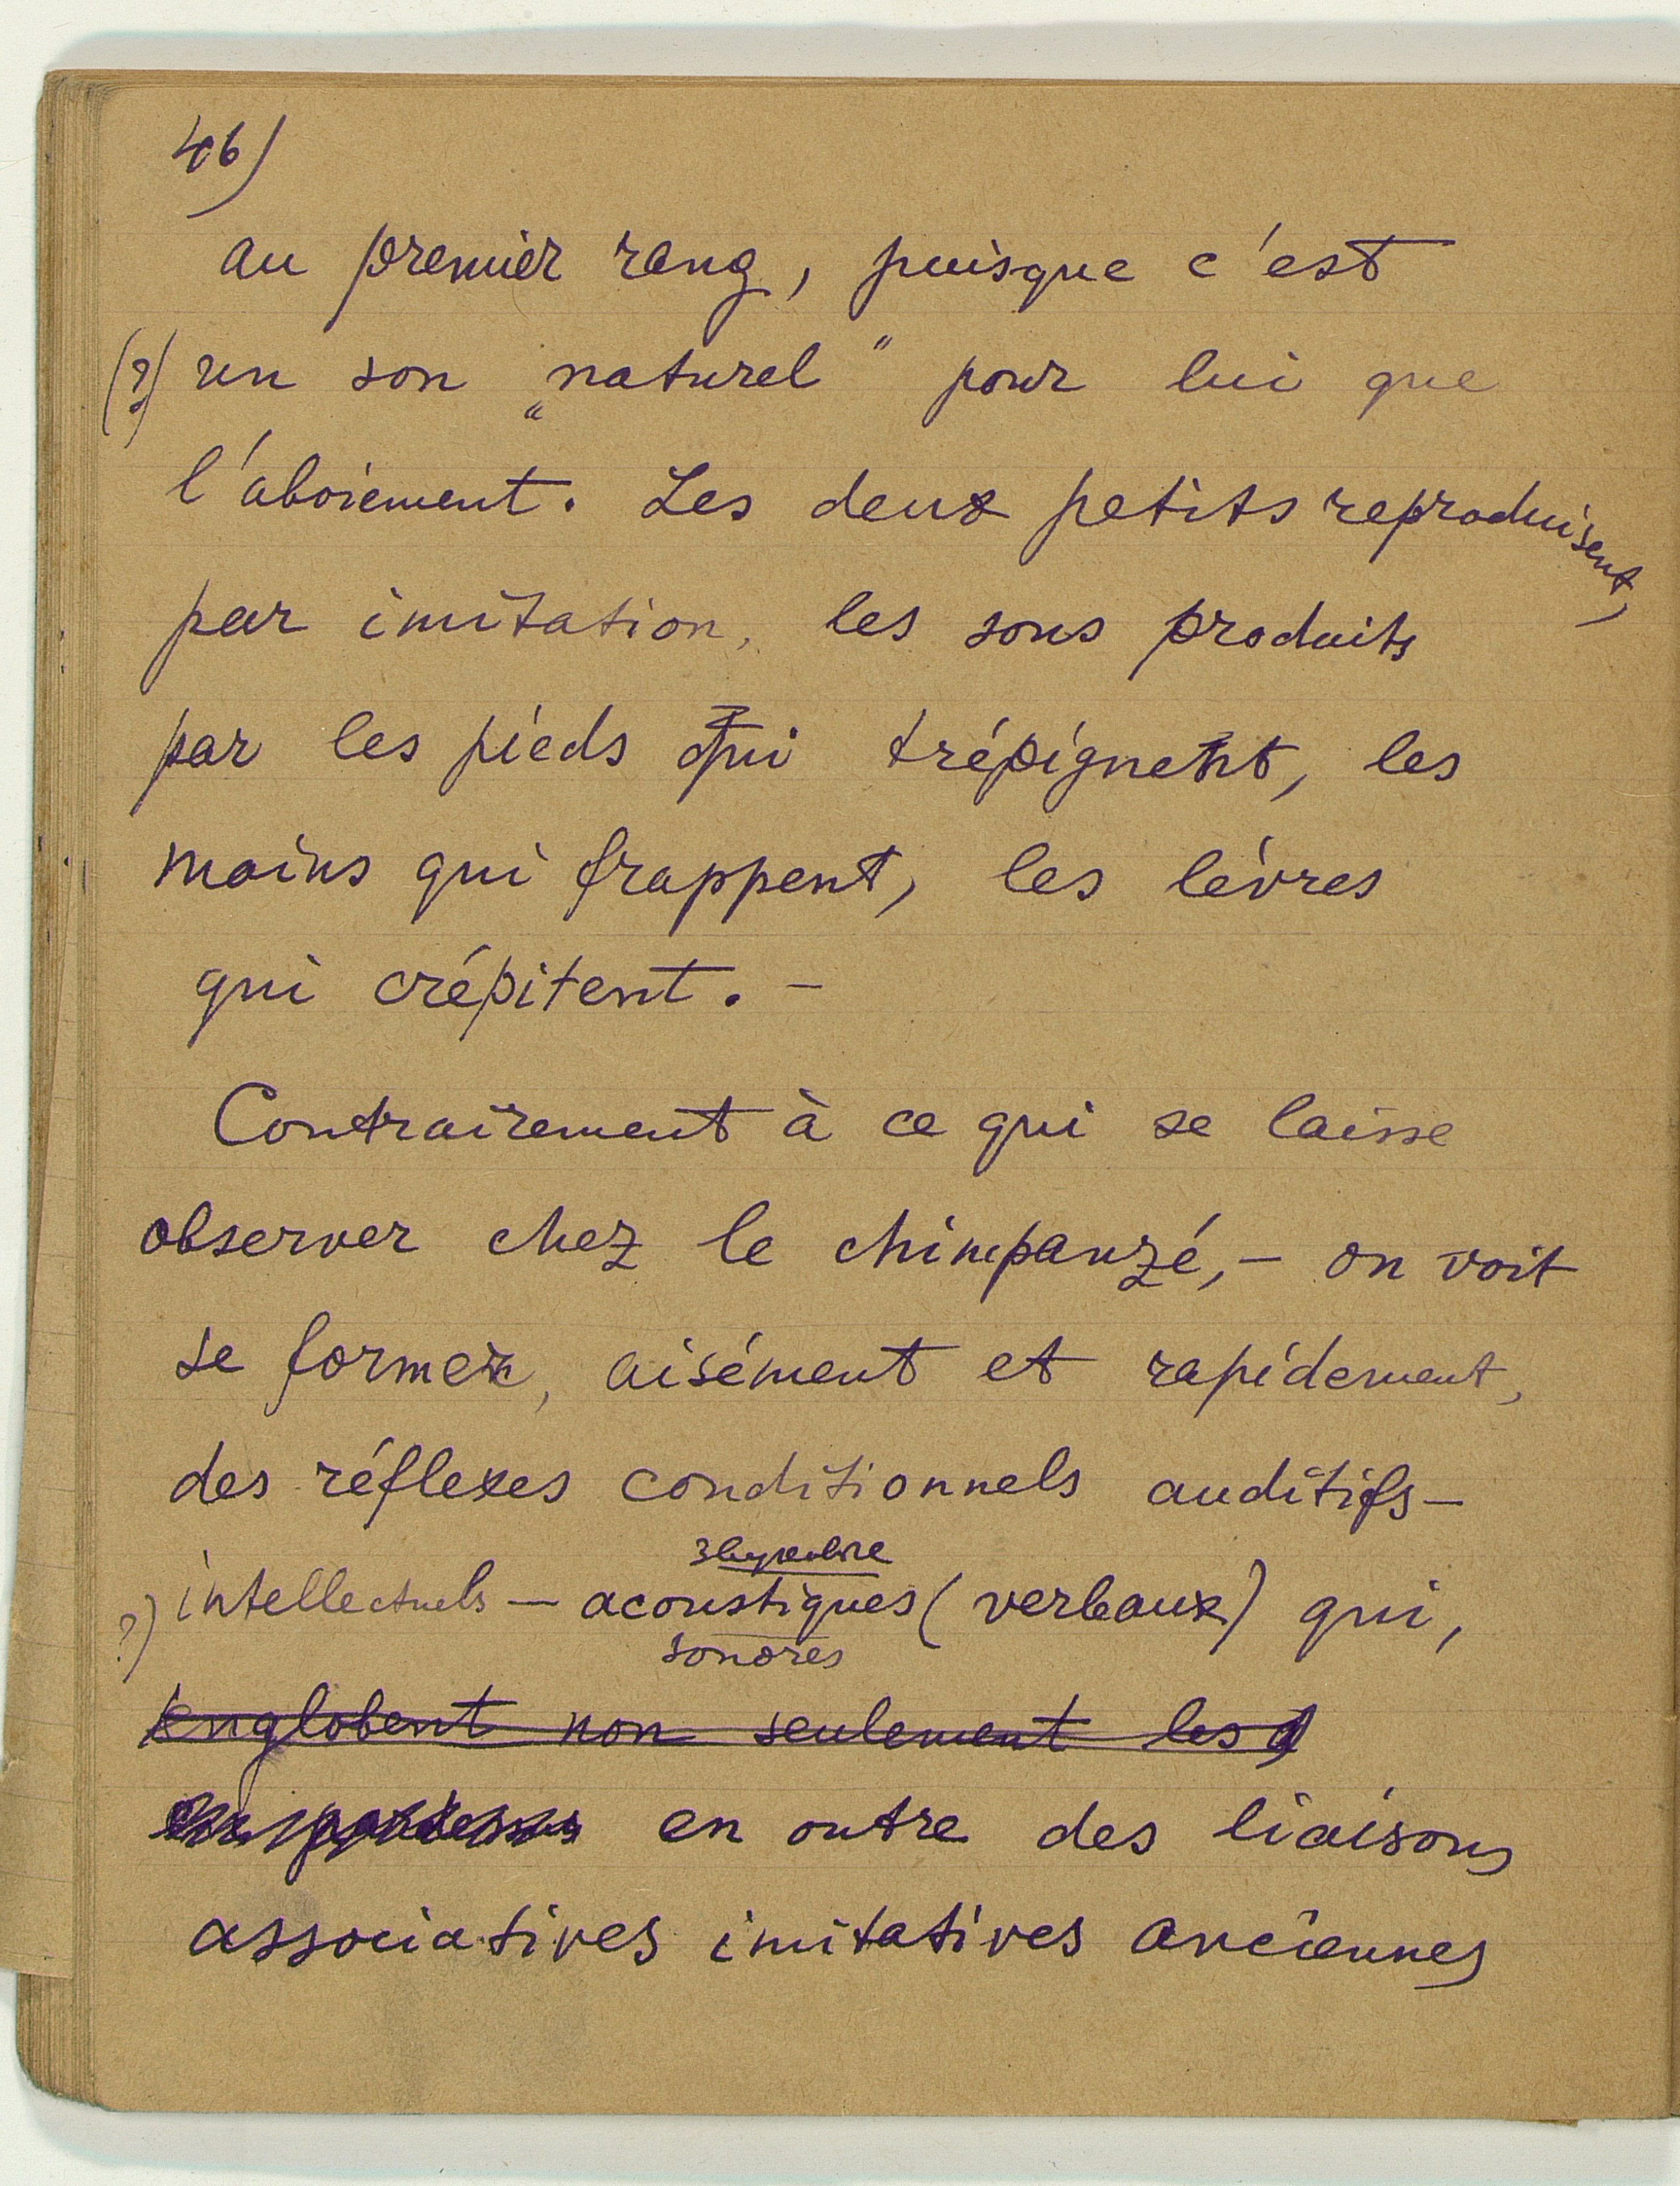 46)
au premier rang, puisque c'est
(?) un son „naturel" pour lui que
l'aboiement. Les deux petits reproduisent,
par imitation, les sons produits
par les pieds qui trépignent, les
mains qui frappent, les lèvres
qui crépitent. —
Contrairement à ce qui se laisse
observer chez le chimpanzé, — on voit
se former, aisément et rapidement,
des réflexes conditionnels auditifs —
звуковые
?) intellectuels — acoustiques (verbaux) qui,
sonores
englobent non seulement les
en outre des liaisons
associatives imitatives anciennes